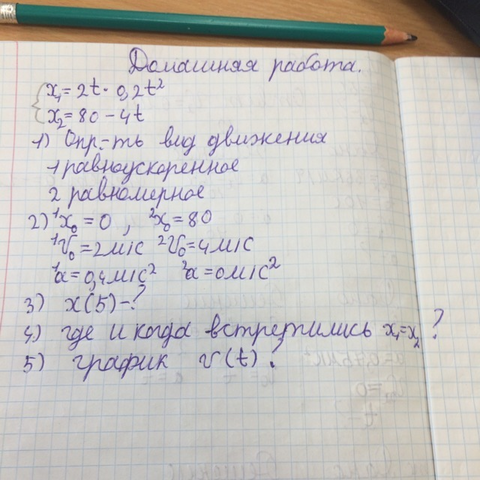 Домашняя работа.
x₁=2t·0,2t²
x₂=80-4t
1) Опр-ть вид движения
1 равноускоренное
2 равномерное
2) ¹x₀=0, ²x₀=80
¹v₀=2м/с ²v₀=4м/с
¹a=0,4м/с² ²a=0м/с²
3) x(5)-?
4) где и когда встретились x₁=x₂?
5) график v(t)?